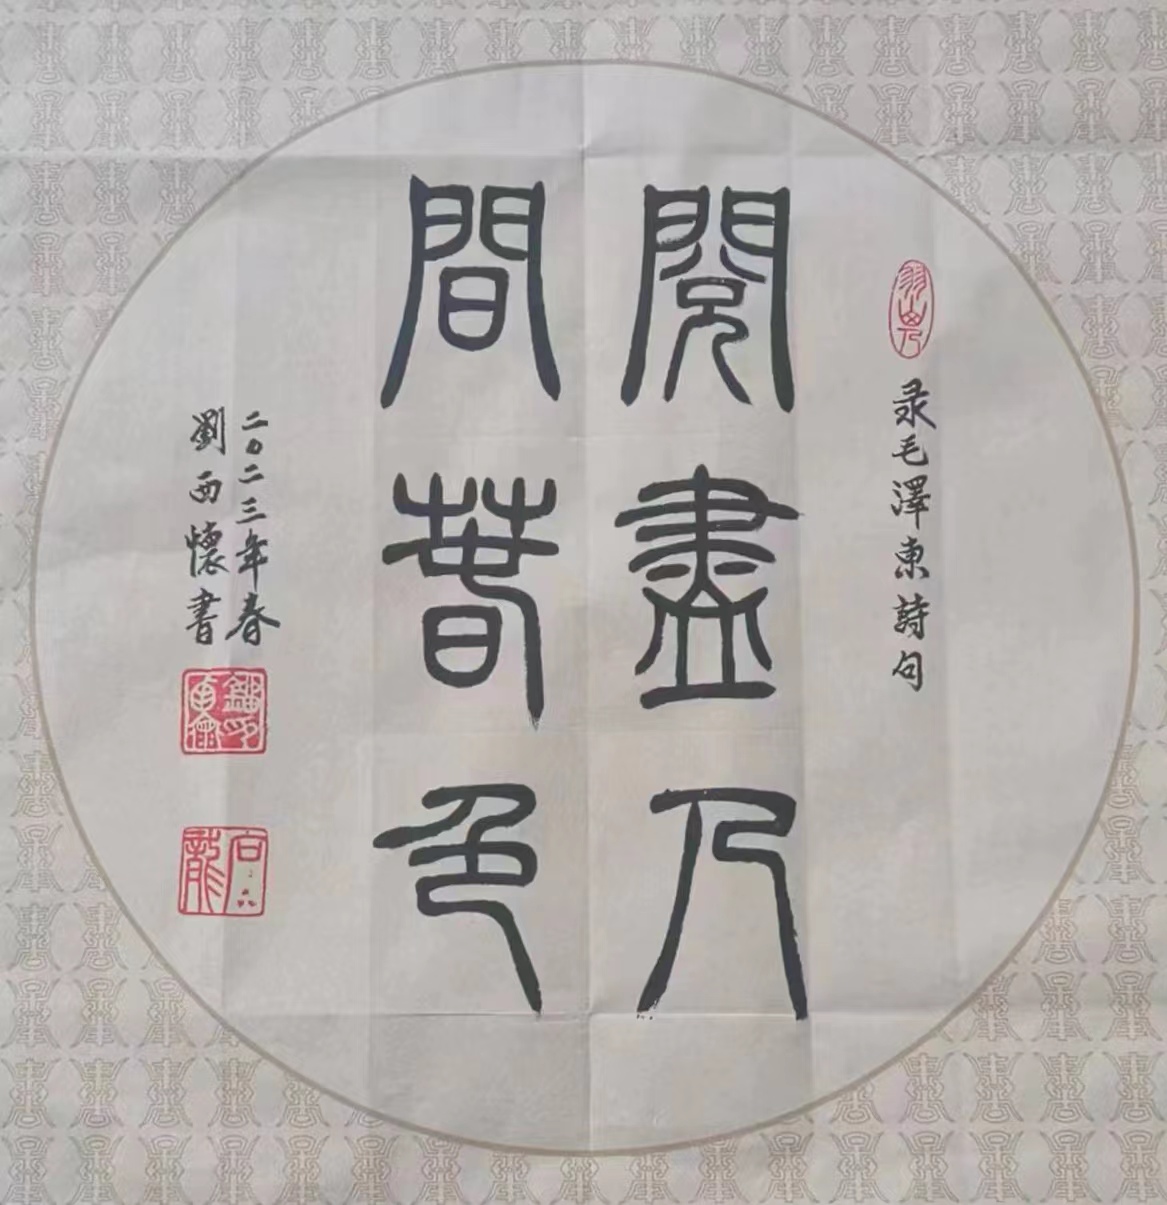 录毛澤東詩句
閱盡人
間春色
二〇二三年春
劉西懷書